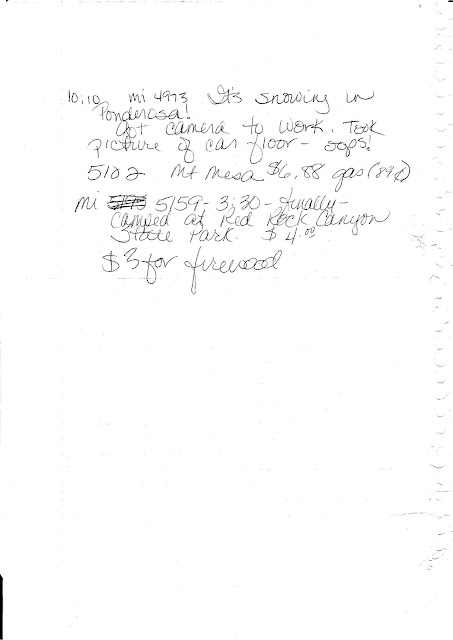 10:10 mi 4973 It's snowing in
Ponderosa!
Got camera to work. Took
picture of car floor - oops!
5102 Mt Mesa $6.88 gas (89¢)
mi 5159 - 3:30 - finally -
camped at Red Rock Canyon
State Park. $4.00
$3 for firewood